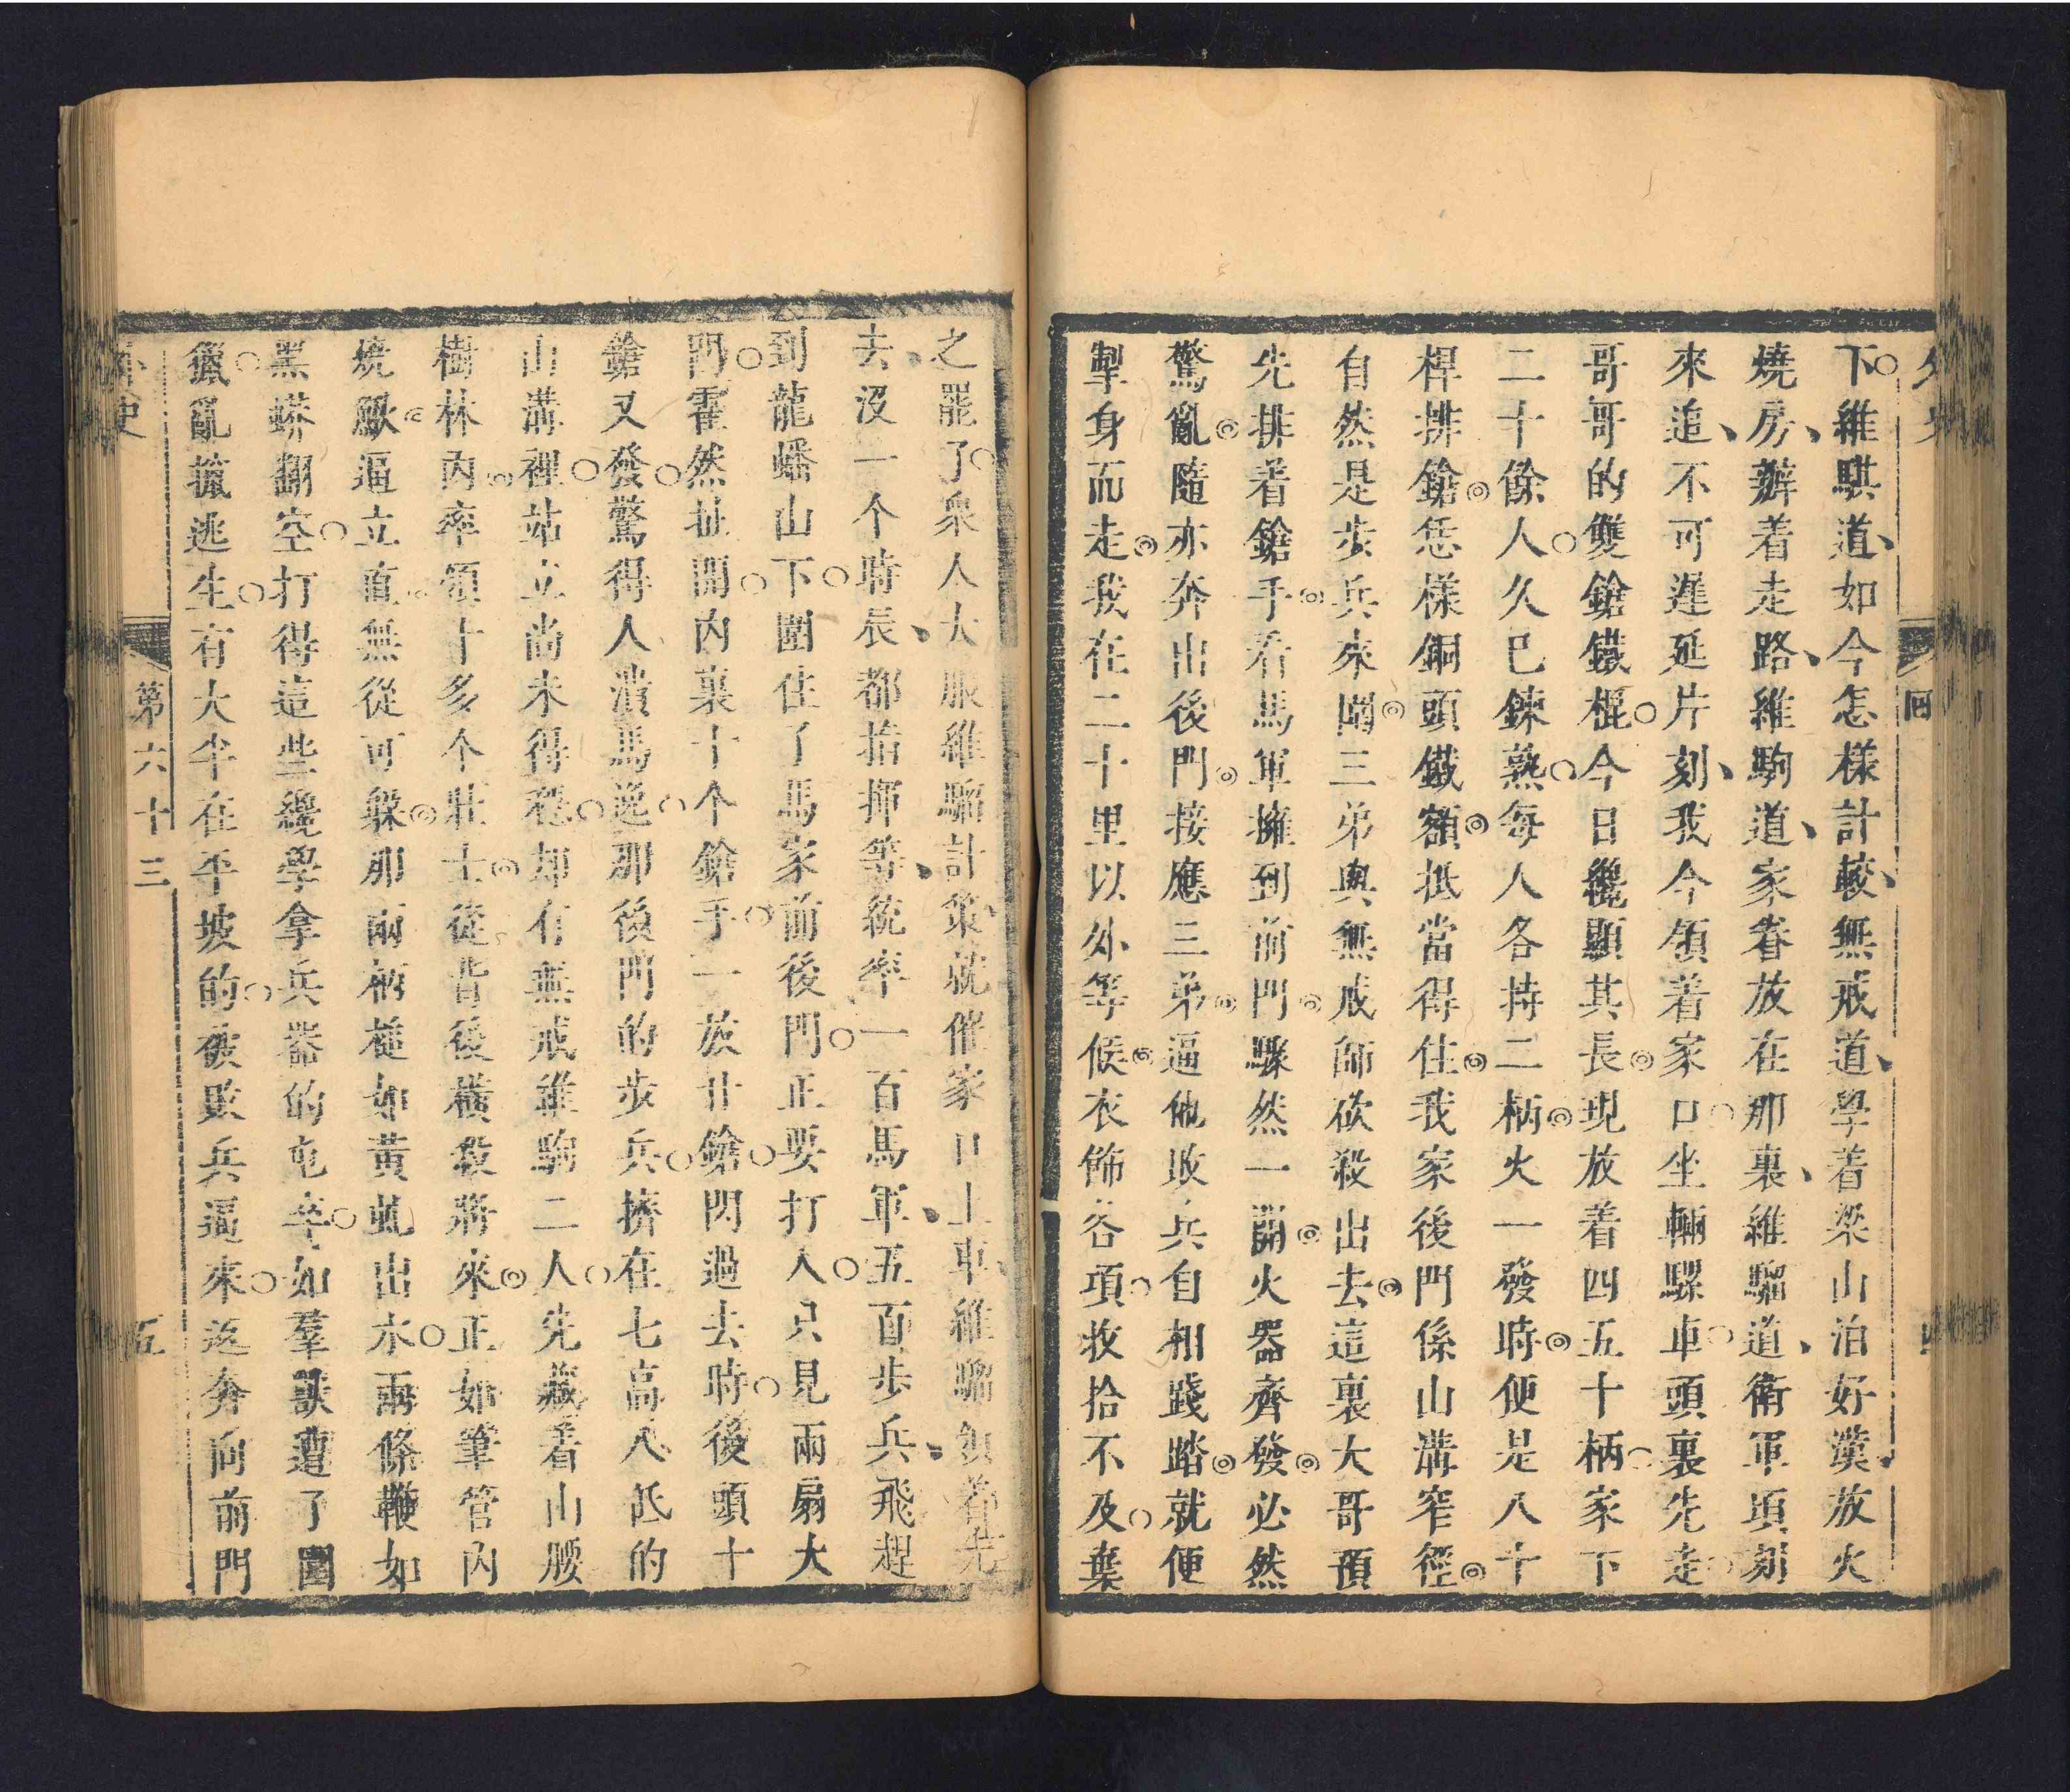 下維騏道如今怎樣計較無戒道學着梁山泊好漢放火
燒房辦着走路維駒道家眷放在那裏維騮道衛軍頃刻
來追不可遲延片刻我今領着家口坐輛騾車頭裏先走
哥哥的雙鎗鐵棍今日纔顯其長現放着四五十柄家下
二十餘人久已鍊熟每人各持二柄火一發時便是八十
桿排鎗恁樣銅頭鐵額抵當得住我家後門係山溝窄徑
自然是步兵來圍三弟與無戒師砍殺出去這裏大哥預
先排着鎗手看馬軍擁到前門驟然一開火器齊發必然
驚亂隨亦奔出後門接應三弟逼他敗兵自相踐踏就便
掣身而走我在二十里以外等候衣飾各項收拾不及棄
之罷了衆人大服維騮計策就催家口上車維騮領着先
去沒一个時辰都指揮等統率一百馬軍五百步兵飛趕
到龍蟠山下圍住了馬家前後門正要打入只見兩扇大
門霍然扯開內裏十个鎗手一放廿鎗閃過去時後頭十
鎗又發驚得人潰馬逸那後門的步兵擠在七高八低的
山溝裡站立尚未得穩却有無戒維駒二人先藏着山腰
樹林內率領十多个壯士從背後橫殺將來正如筆管內
燒鰍逼立直無從可躲那兩柄槌如黃虬出水兩條鞭如
黑蟒翻空打得這些纔學拿兵器的屯卒如羣獸遭了圍
獵亂攛逃生有大半在平坡的被敗兵逼來返奔向前門
外史
第六十三
五